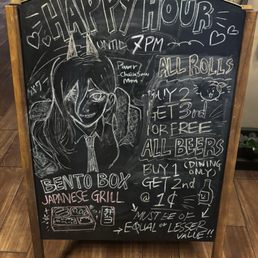 HAPPY HOUR
UNTIL 7PM
Power
Chainsaw
Man
ALL ROLLS
BUY 2
GET 3rd
FOR FREE
ALL BEERS
BUY 1 (DINING
ONLY)
GET 2nd
@ 1¢
MUST BE OF
EQUAL OR LESSER
VALUE!!
BENTO BOX
JAPANESE GRILL